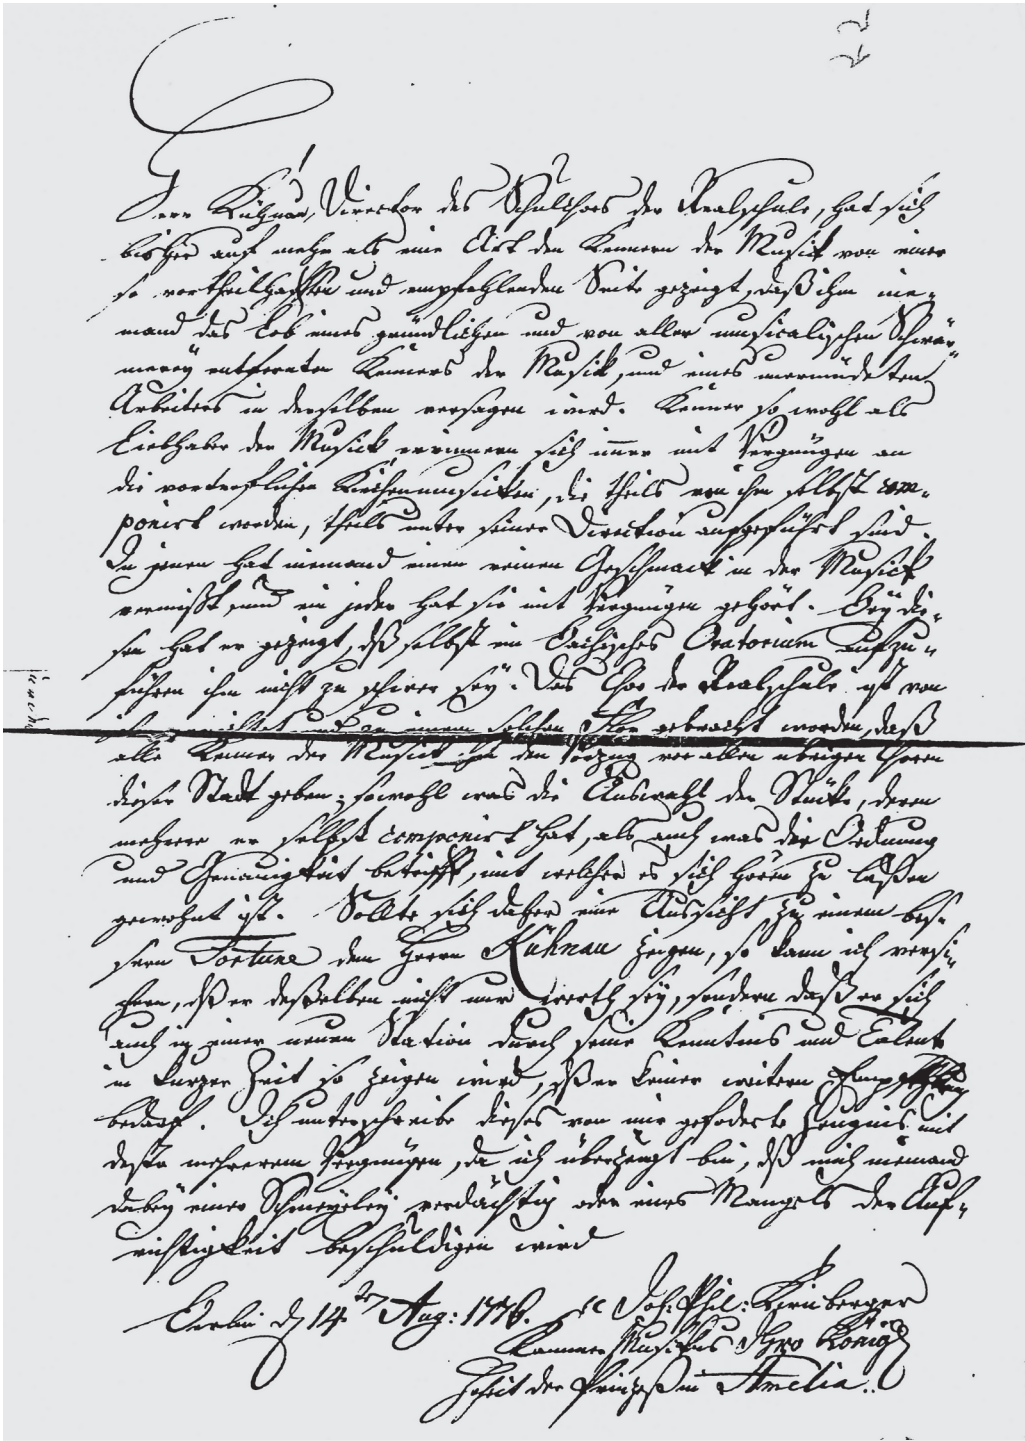 22
Herr Kühnau, Director des Schulchors der Realschule, hat sich
bisher auf mehr als eine Art den Kennern der Musick von einer
so vortheilhafften und empfehlenden Seite gezeigt, daß ihm nie-
mand das Lob eines gründlichen und von aller musicalischen Schwär-
merey entfernten Kenners der Musick, und eines unermüdeten
Arbeiters in derselben versagen wird. Kenner so wohl als
Liebhaber der Musick erinnern sich immer mit Vergnügen an
die vortreflichen Kirchenmusicken, die theils von ihm selbst com-
ponirt worden, theils unter seiner Direction aufgeführt sind.
In jenen hat niemand einen reinen Geschmack in der Musick
vermißt, und ein jeder hat sie mit Vergnügen gehört. Bey die-
sen hat er gezeigt, dß selbst ein Bachisches Oratorium aufzu-
führen ihm nicht zu schwer sey. Das Chor der Realschule ist von
ihm errichtet und zu einem solchen Flor gebracht worden, daß
alle Kenner der Musick ihm den Vorzug vor allen übrigen Chören
dieser Stadt geben; sowohl was die Auswahl der Stücke, deren
mehrere er selbst componirt hat, als auch was die Ordnung
und Genauigkeit betrifft, mit welcher es sich hören zu laßen
gewohnt ist. Sollte sich daher eine Aussicht zu einem bes-
sern Fortune dem Herrn Kühnau zeigen, so kann ich versi-
chern, dß er deßelben nicht nur werth sey, sondern daß er sich
auch in einer neuen Station durch seine Kenntnis und Talente
in kurzer Zeit so zeigen wird, dß er keiner weitern Empfehlung
bedarf. Ich unterschreibe dieses von mir gefoderte Zeugnis mit
desto mehrerem Vergnügen, da ich überzeugt bin, dß mich niemand
dabey einer Schmeycheley verdächtig oder eines Mangels der Auf-
richtigkeit beschuldigen wird
Berlin d 14ten Aug: 1776. Joh: Phil: Kirnberger
Kammer Musikus Ihro Königl
Hoheit der Prinzeßin Amelia.